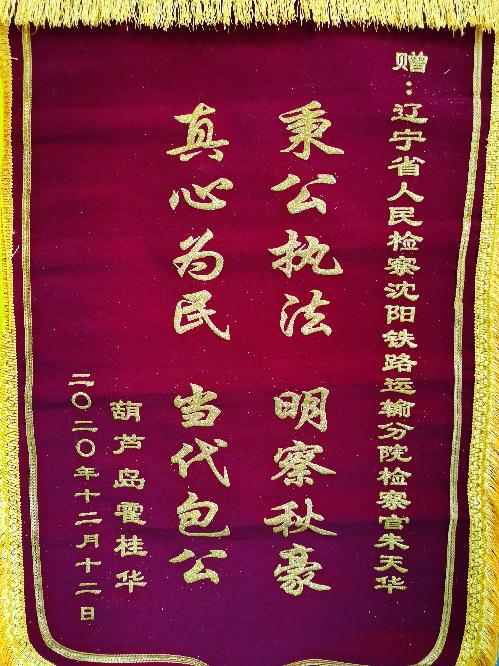 赠：辽宁省人民检察沈阳铁路运输分院检察官朱天华
秉公执法 明察秋豪
真心为民 当代包公
葫芦岛霍桂华
二〇二〇年十二月十二日